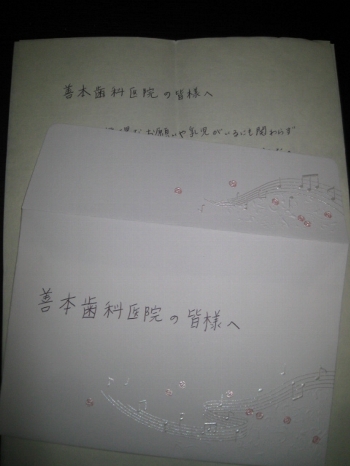 善本歯科医院の皆様へ
お願いや乳児がいるにも関わらず
善本歯科医院の皆様へ